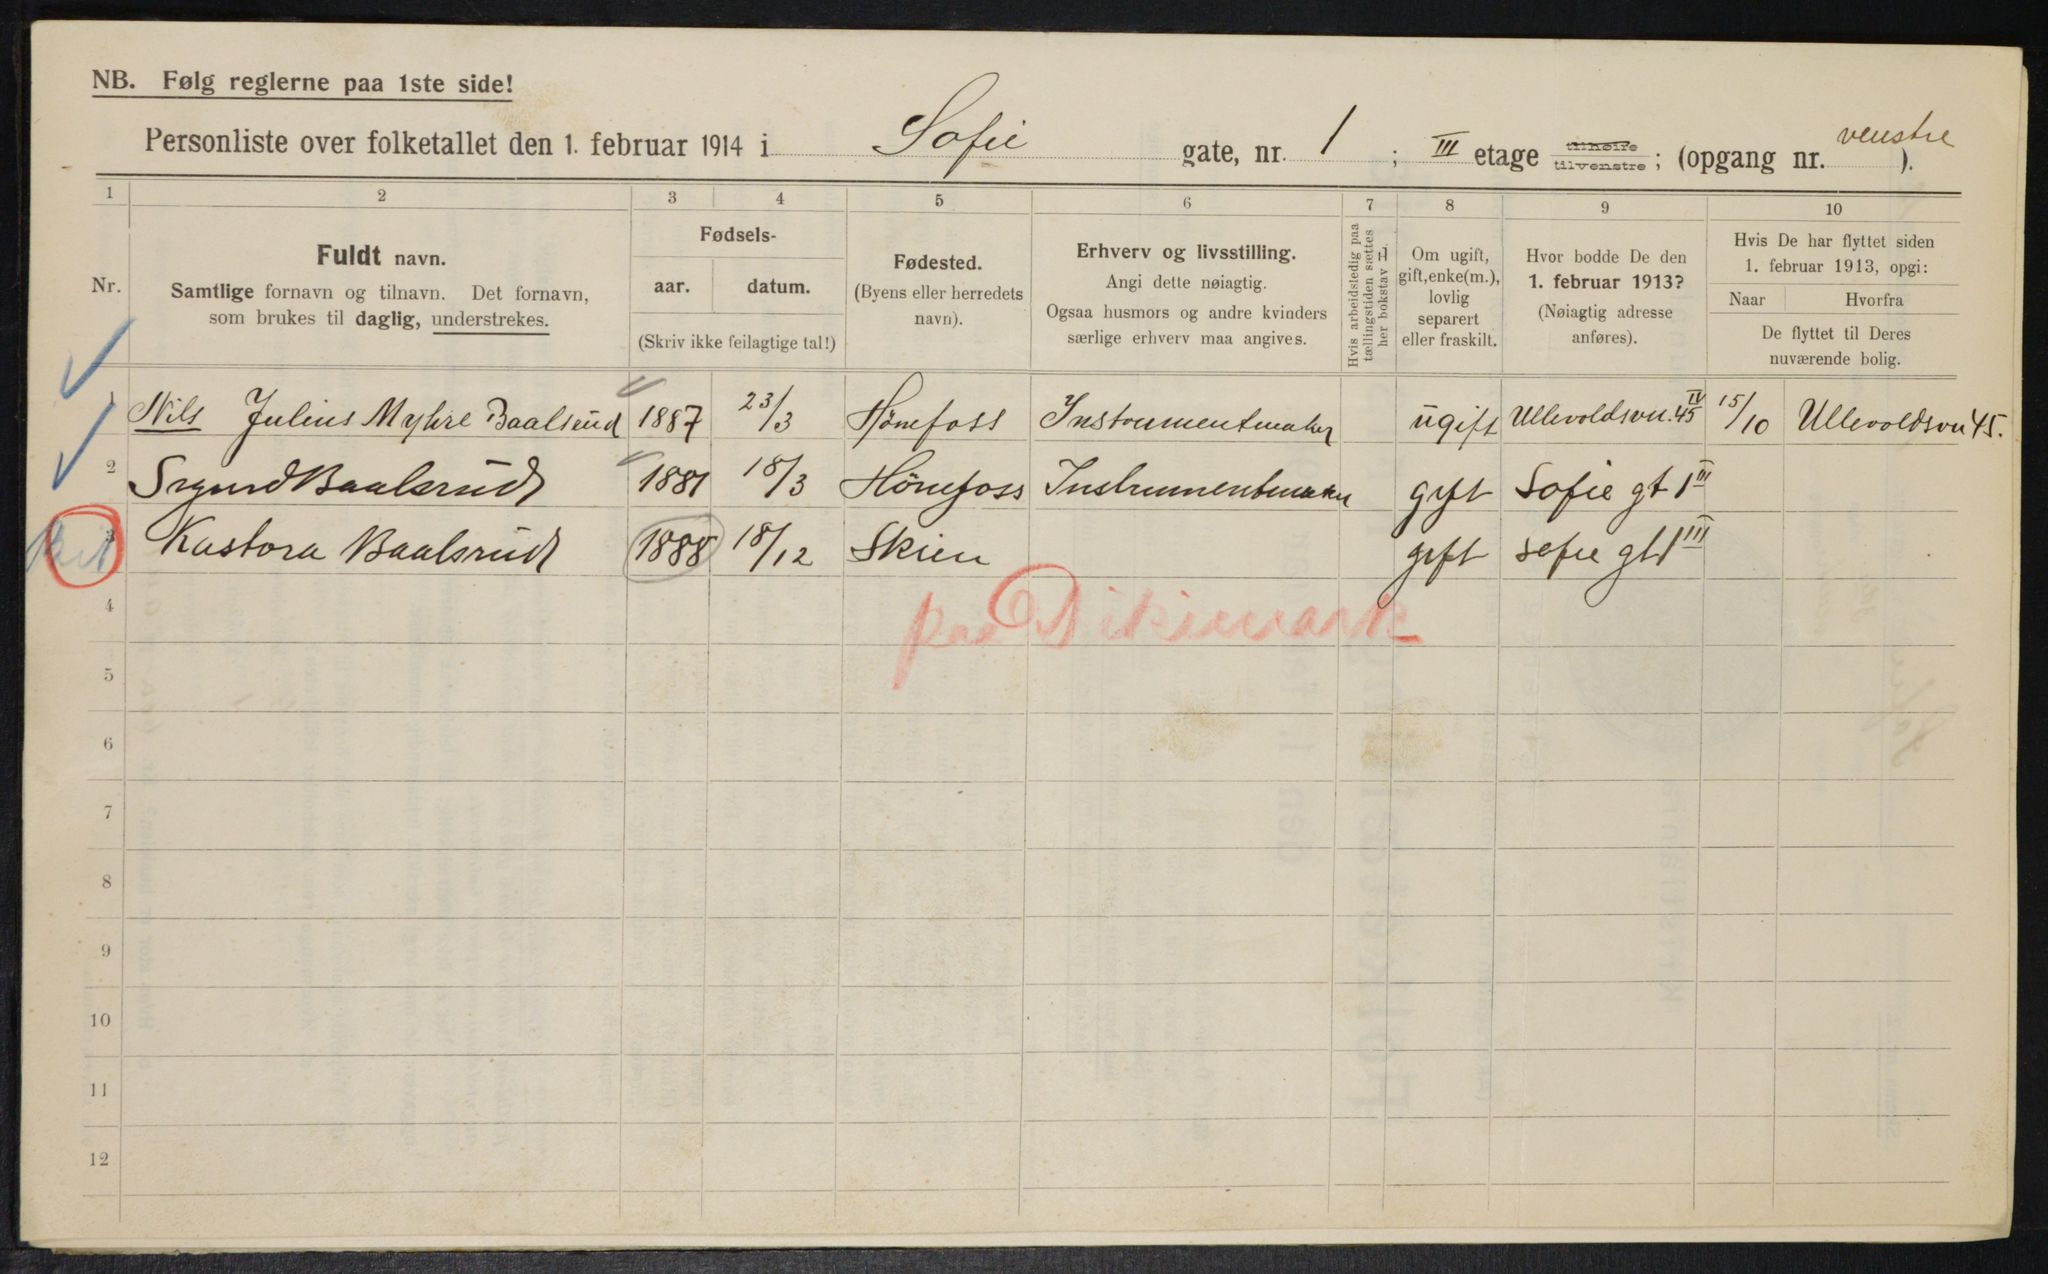 NB. Følg reglerne paa 1ste side!
Personliste over folketallet den 1. februar 1914 i Sofie gate, nr. 1 ; III etage tilhøire tilvenstre ; (opgang nr. venstre ).
1 2 3 4 5 6 7 8 9 10
Nr.
Fuldt navn.
Samtlige fornavn og tilnavn. Det fornavn,
som brukes til daglig, understrekes.
Fødsels-
aar. datum.
(Skriv ikke feilagtige tal!)
Fødested.
(Byens eller herredets
navn).
Erhverv og livsstilling.
Angi dette nøiagtig.
Ogsaa husmors og andre kvinders
særlige erhverv maa angives.
Hvis arbeidsledig paa
tællingstiden sættes
her bokstav L.
Om ugift,
gift, enke(m.),
lovlig
separert
eller fraskilt.
Hvor bodde De den
1. februar 1913?
(Nøiagtig adresse
anføres).
Hvis De har flyttet siden
1. februar 1913, opgi:
Naar Hvorfra
De flyttet til Deres
nuværende bolig.
1 Nils Julius Myhre Baalsrud 1887 23/3 Hønefoss Instrumentmaker ugift Ullevoldsvn. 45 IV 15/10 Ullevoldsvn 45.
2 Sigurd Baalsrud 1881 18/3 Hønefoss Instrumentmaker gift Sofie gt 1 III
3 Kastora Baalsrud 1888 18/12 Skien gift Sofie gt 1 III
paa Dikemark
4
5
6
7
8
9
10
11
12